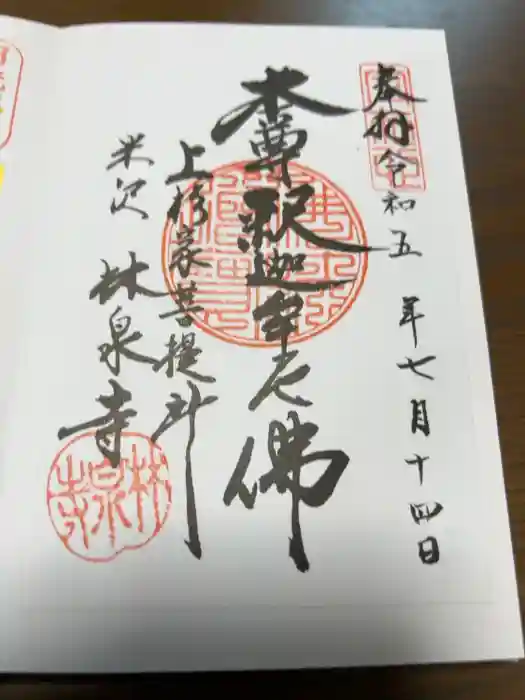 奉拝 令和五年七月十四日
本尊釈迦牟尼佛
上杉家菩提所
米沢 林泉寺
林泉寺